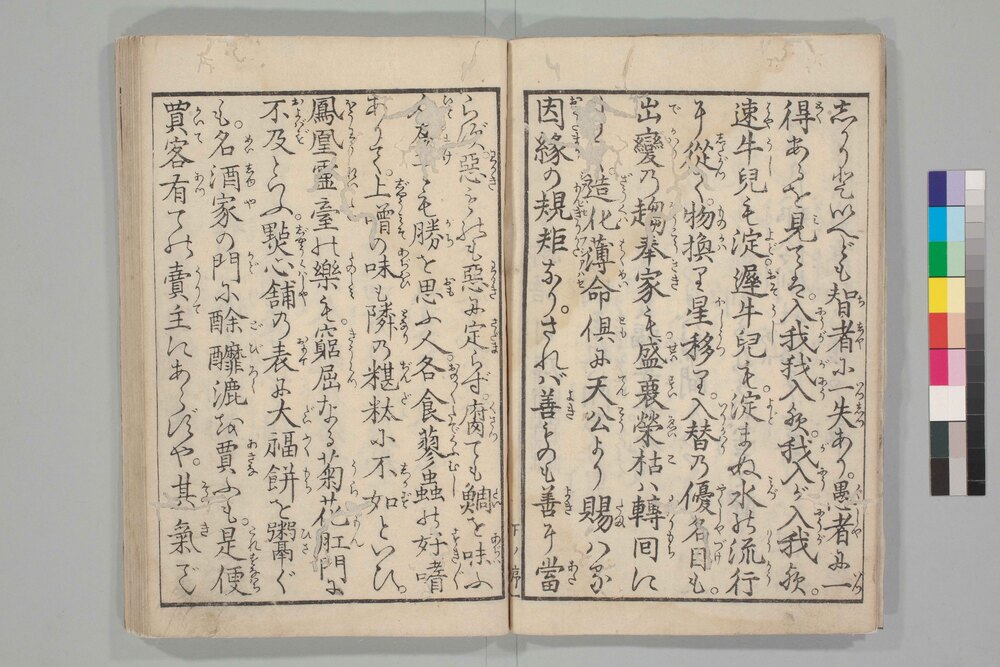 しかりといへども智者に一失あり。愚者に一
得あるを見てば。入我我入欤。我入が入我欤。
速牛兒も淀。遲牛兒も淀まぬ水の流行
に従て。物換り星移り。入替の優名目も
出變の趨奉家も。盛衰榮枯は轉間に
造化薄命倶に天公より賜はる
因縁の規矩なり。されば善ものも善に當
らず。惡きも惡に定らず。腐ても鯛を味ふ
も勝を思ふ人。各食蓼蟲の好嗜
ありて。上噌の味も隣の糂粏に不如といひ。
鳳凰霊臺の樂も。窮屈なる菊花肛門に
不及といふ。點心舗の表に大福餅を粥ぐ
も。名酒家の門に酴醾漉を賈ふも。是便
賈客有ての賣主にあらずや。其氣で
下ノ序